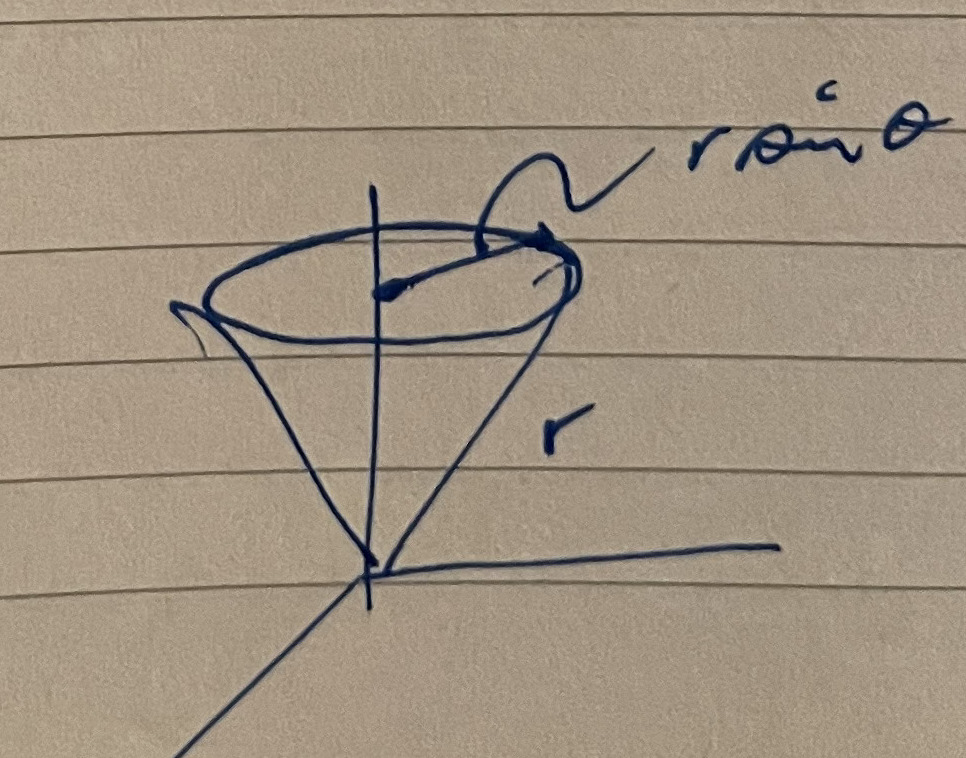 r sin θ
r